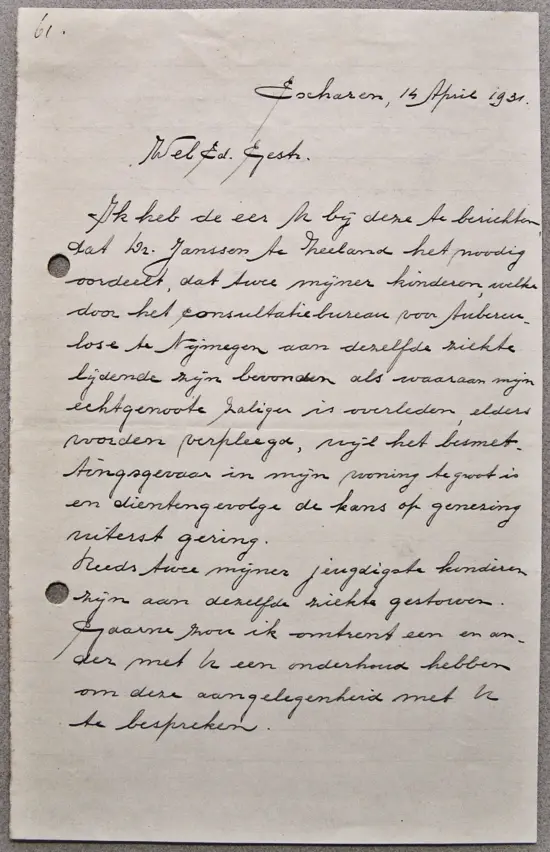 61.
Escharen, 14 April 1931.
Wel Ed. Gestr.
Ik heb de eer U bij deze te berichten,
dat Dr. Janssen te Zeeland het noodig
oordeelt, dat twee mijner kinderen, welke
door het consultatiebureau voor tubercu-
lose te Nijmegen aan dezelfde ziekte
lijdende zijn bevonden als waaraan mijn
echtgenoote zaliger is overleden, elders
worden verpleegd, wijl het besmet-
tingsgevaar in mijn woning te groot is
en dientengevolge de kans op genezing
uiterst gering.
Reeds twee mijner jeugdigste kinderen
zijn aan dezelfde ziekte gestorven.
Gaarne zou ik omtrent een en an-
der met U een onderhoud hebben
om deze aangelegenheid met U
te bespreken.